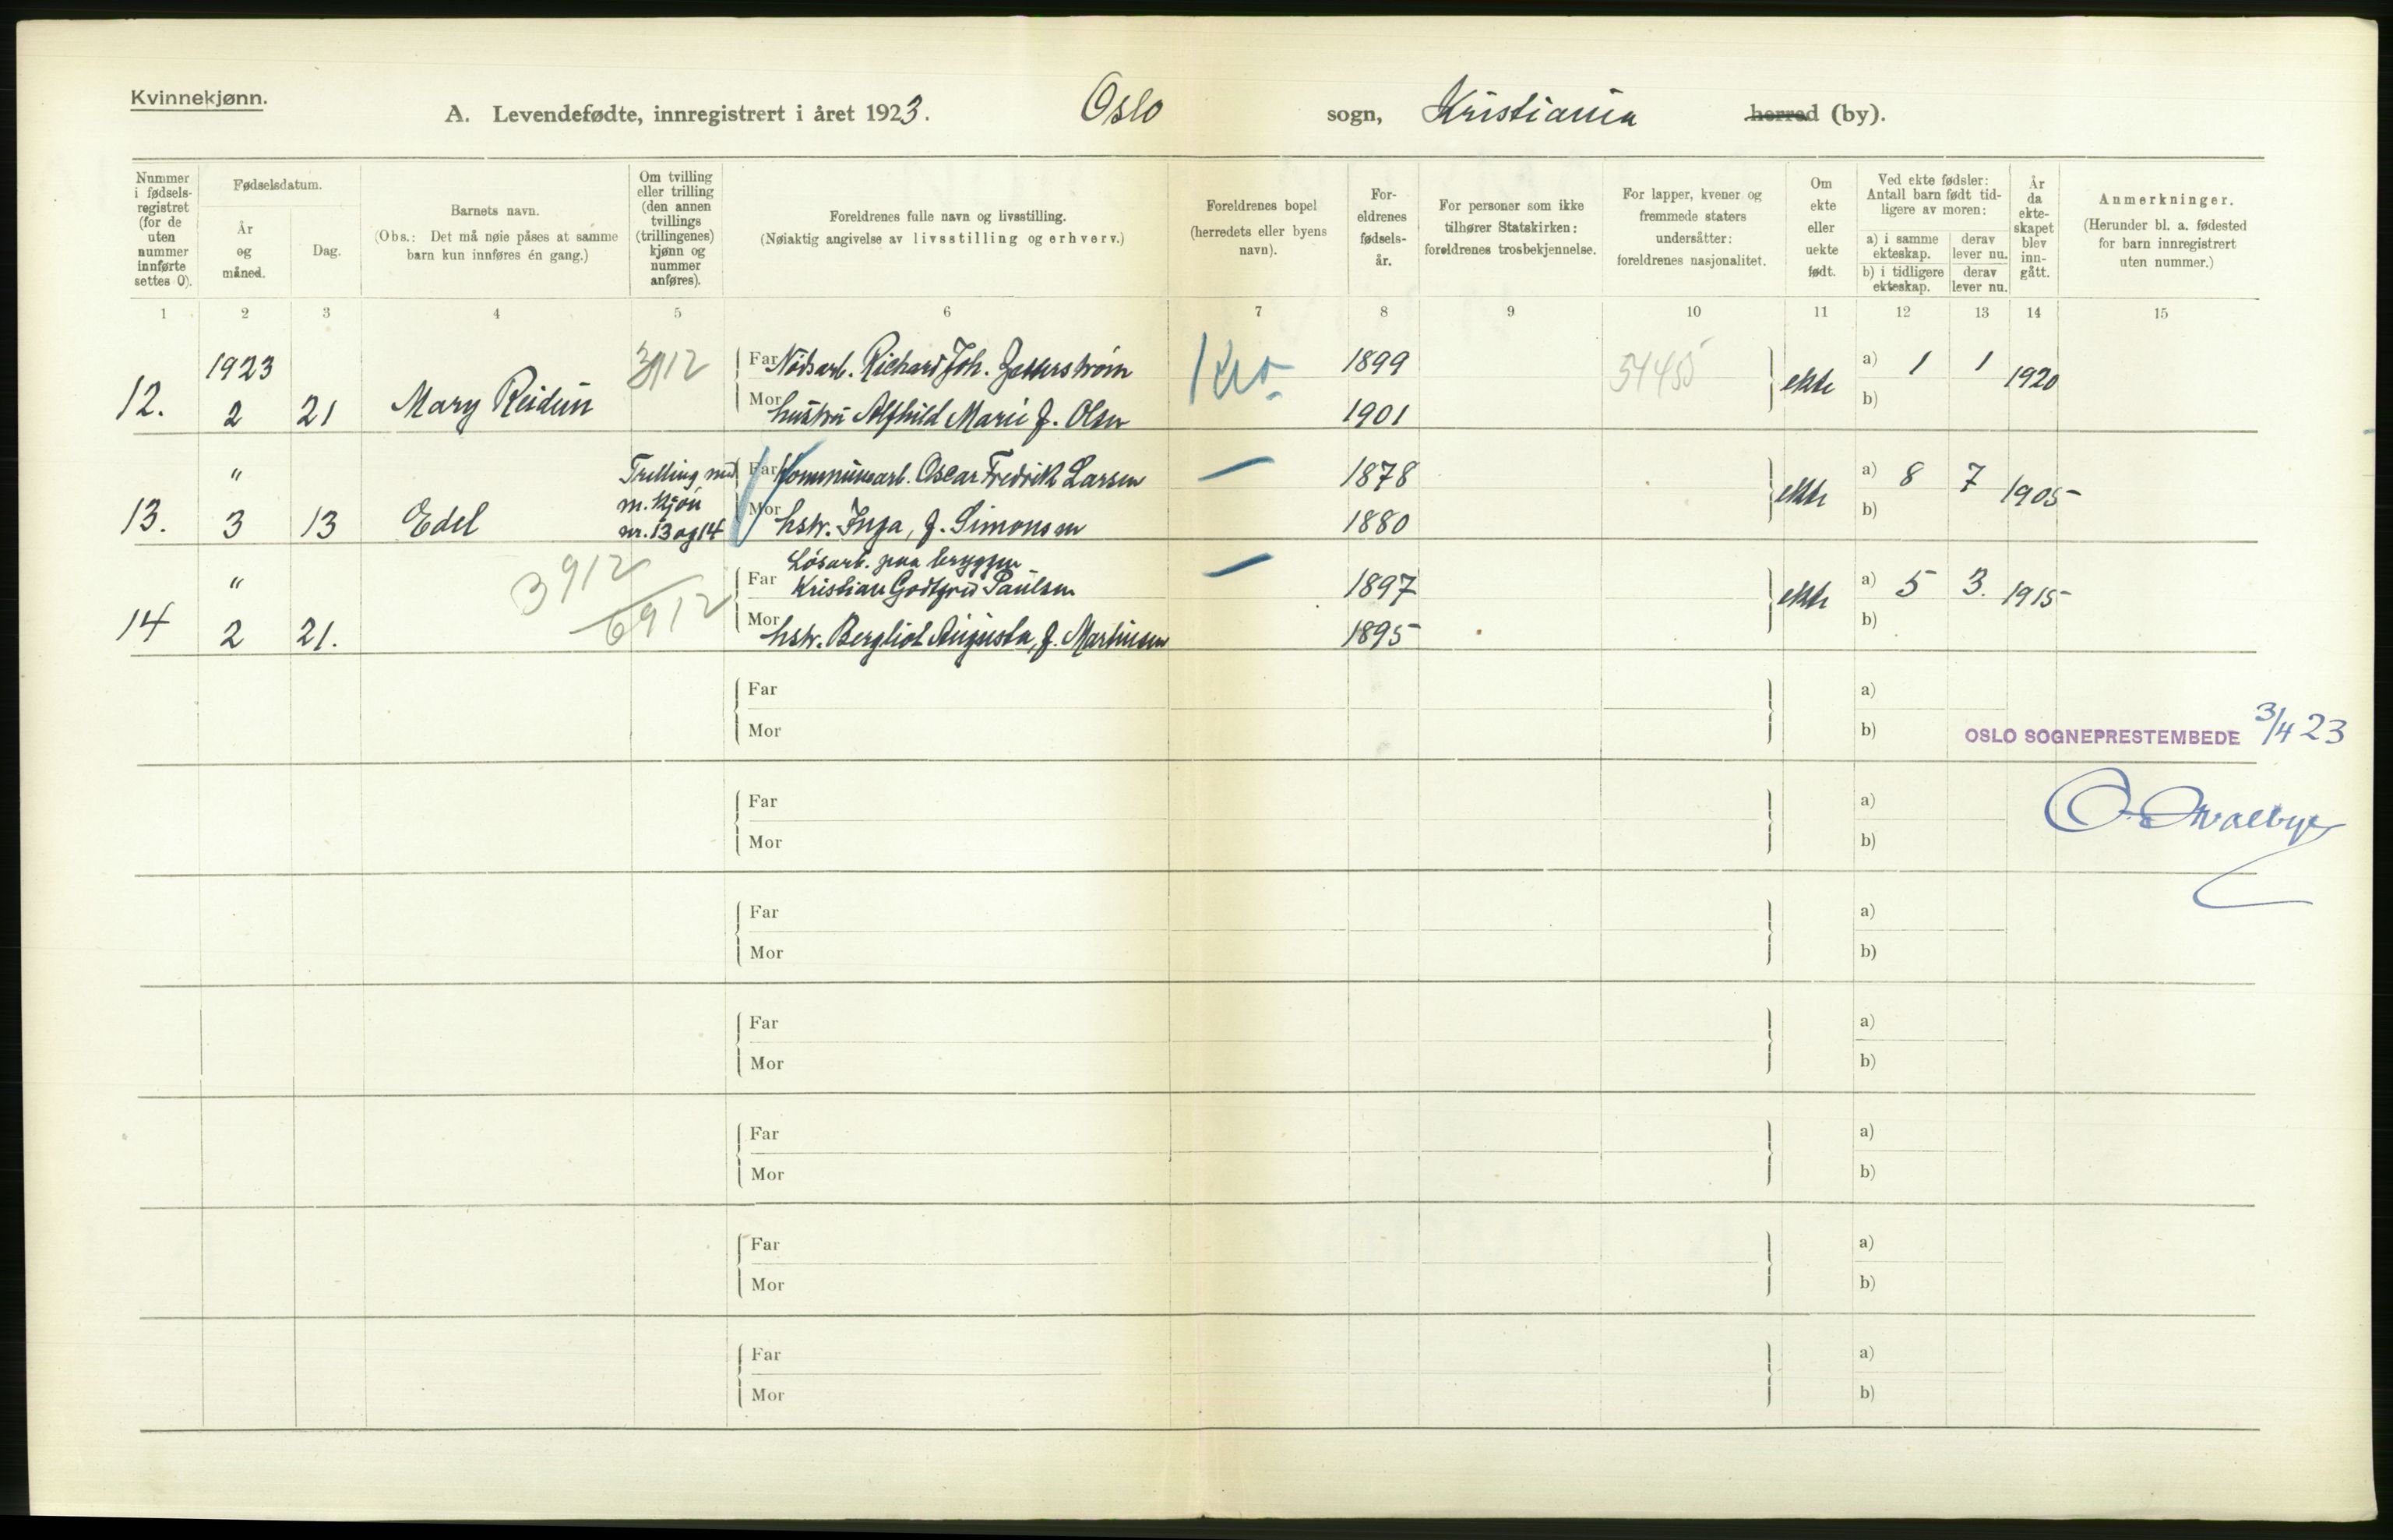 Kvinnekjønn.
A. Levendefødte, innregistrert i året 1923. Oslo sogn, Kristiania herred (by).
Nummer i fødsels-registret (for de uten nummer innførte settes 0).
Fødselsdatum.
År og måned.
Dag.
Barnets navn.
(Obs.: Det må nøie påses at samme barn kun innføres én gang.)
Om tvilling eller trilling (den annen tvillings (trillingenes) kjønn og nummer anføres).
Foreldrenes fulle navn og livsstilling.
(Nøiaktig angivelse av livsstilling og erhverv.)
Foreldrenes bopel (herredets eller byens navn).
For-eldrenes fødsels-år.
For personer som ikke tilhører Statskirken: foreldrenes trosbekjennelse.
For lapper, kvener og fremmede staters undersåtter: foreldrenes nasjonalitet.
Om ekte eller uekte født.
Ved ekte fødsler: Antall barn født tid-ligere av moren:
a) i samme ekteskap. derav lever nu.
b) i tidligere ekteskap. derav lever nu.
År da ekte-skapet blev inn-gått.
Anmerkninger.
(Herunder bl. a. fødested for barn innregistrert uten nummer.)
1 2 3 4 5 6 7 8 9 10 11 12 13 14 15
1923 3912 Far Nødsarb. Richard Joh. Kro. 1899 54455 a) 1 1
12. 2 21 Mary Reidun Mor hustru Alfhild Marie f. Olsen 1901 ekte b) 1920
" Trilling med Far Kommunearb. Oscar Fredrik Larsen — 1878 a) 8 7
m. kjøn
13. 3 13 Edel nr. 13 og 14 Mor hstr. Inga, f. Simonsen 1880 ekte b) 1905
3912 Løsarb. paa bryggen —
" Far Kristian Godtfred Paulsen 1897 a) 5 3.
14 2 21. 6912 Mor hstr. Bergliot Augusta, f. Martinsen 1895 ekte b) 1915
Far a)
Mor b)
OSLO SOGNEPRESTEMBEDE 3/4 23
Far a)
Mor b)
Far a)
Mor b)
Far a)
Mor b)
Far a)
Mor b)
Far a)
Mor b)
Far a)
Mor b)